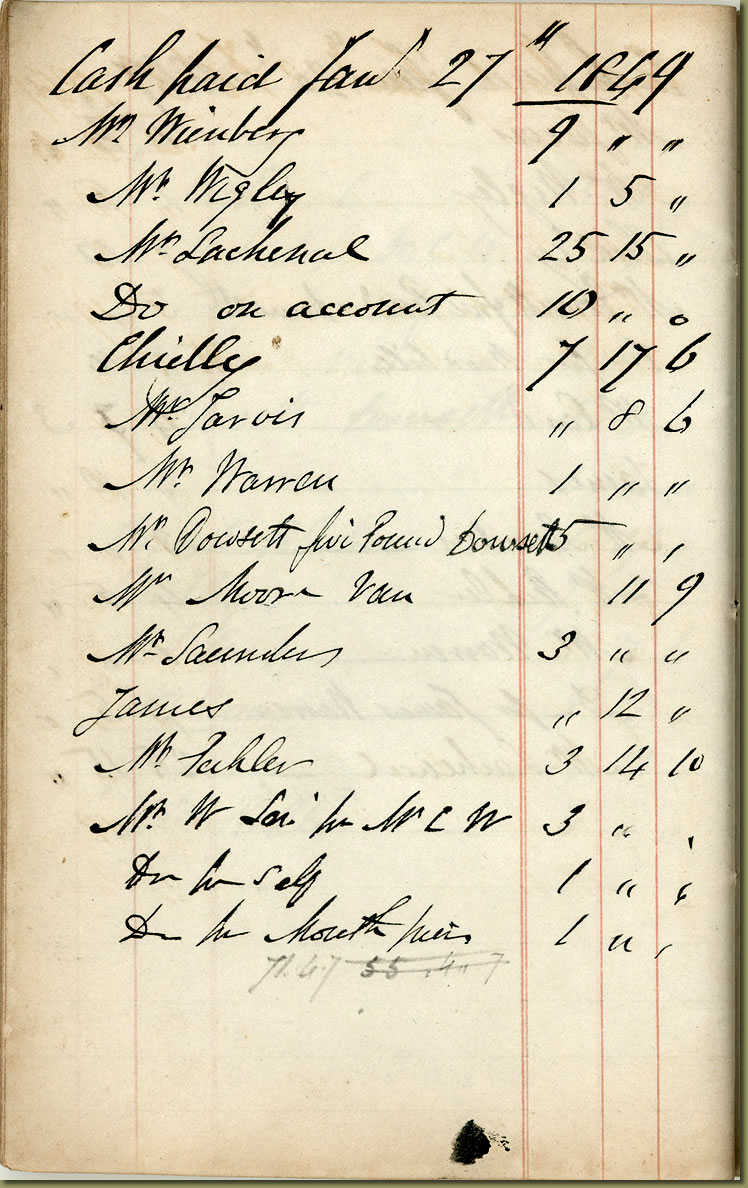 Cash paid Jany 27th 1849
Mr Wienberg 9 " "
Mr Wigley 1 5 "
Mr Lachenal 25 15 "
Do on account 10 " 0
Chielly 7 17 6
Mr Jarvis " 8 6
Mr Warren 1 " "
Mr Dowsett five Pound Dowsett 5 " "
Mr Moore Van 11 9
Mr Saunders 3 " "
James " 12 "
Mr Pehler 3 14 10
Mr W for Mr C W 3 "
Do for self 1 " "
Do for Mouth 1 " "
71.4.7 55.4.7